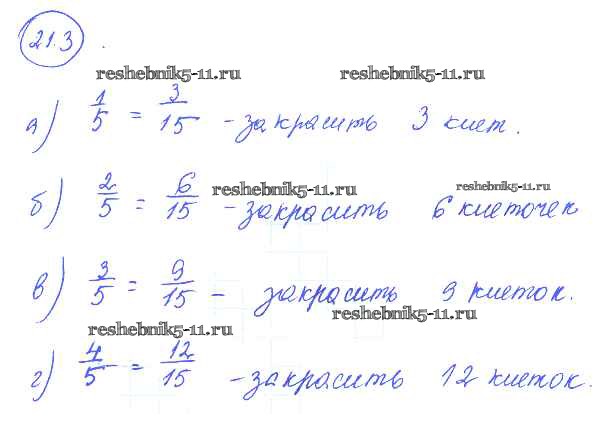 21.3.
reshebnik5-11.ru reshebnik5-11.ru
а) 1/5 = 3/15 - закрасить 3 клет.
reshebnik5-11.ru reshebnik5-11.ru
б) 2/5 = 6/15 - закрасить 6 клеточек
в) 3/5 = 9/15 - закрасить 9 клеток.
reshebnik5-11.ru reshebnik5-11.ru
г) 4/5 = 12/15 - закрасить 12 клеток.